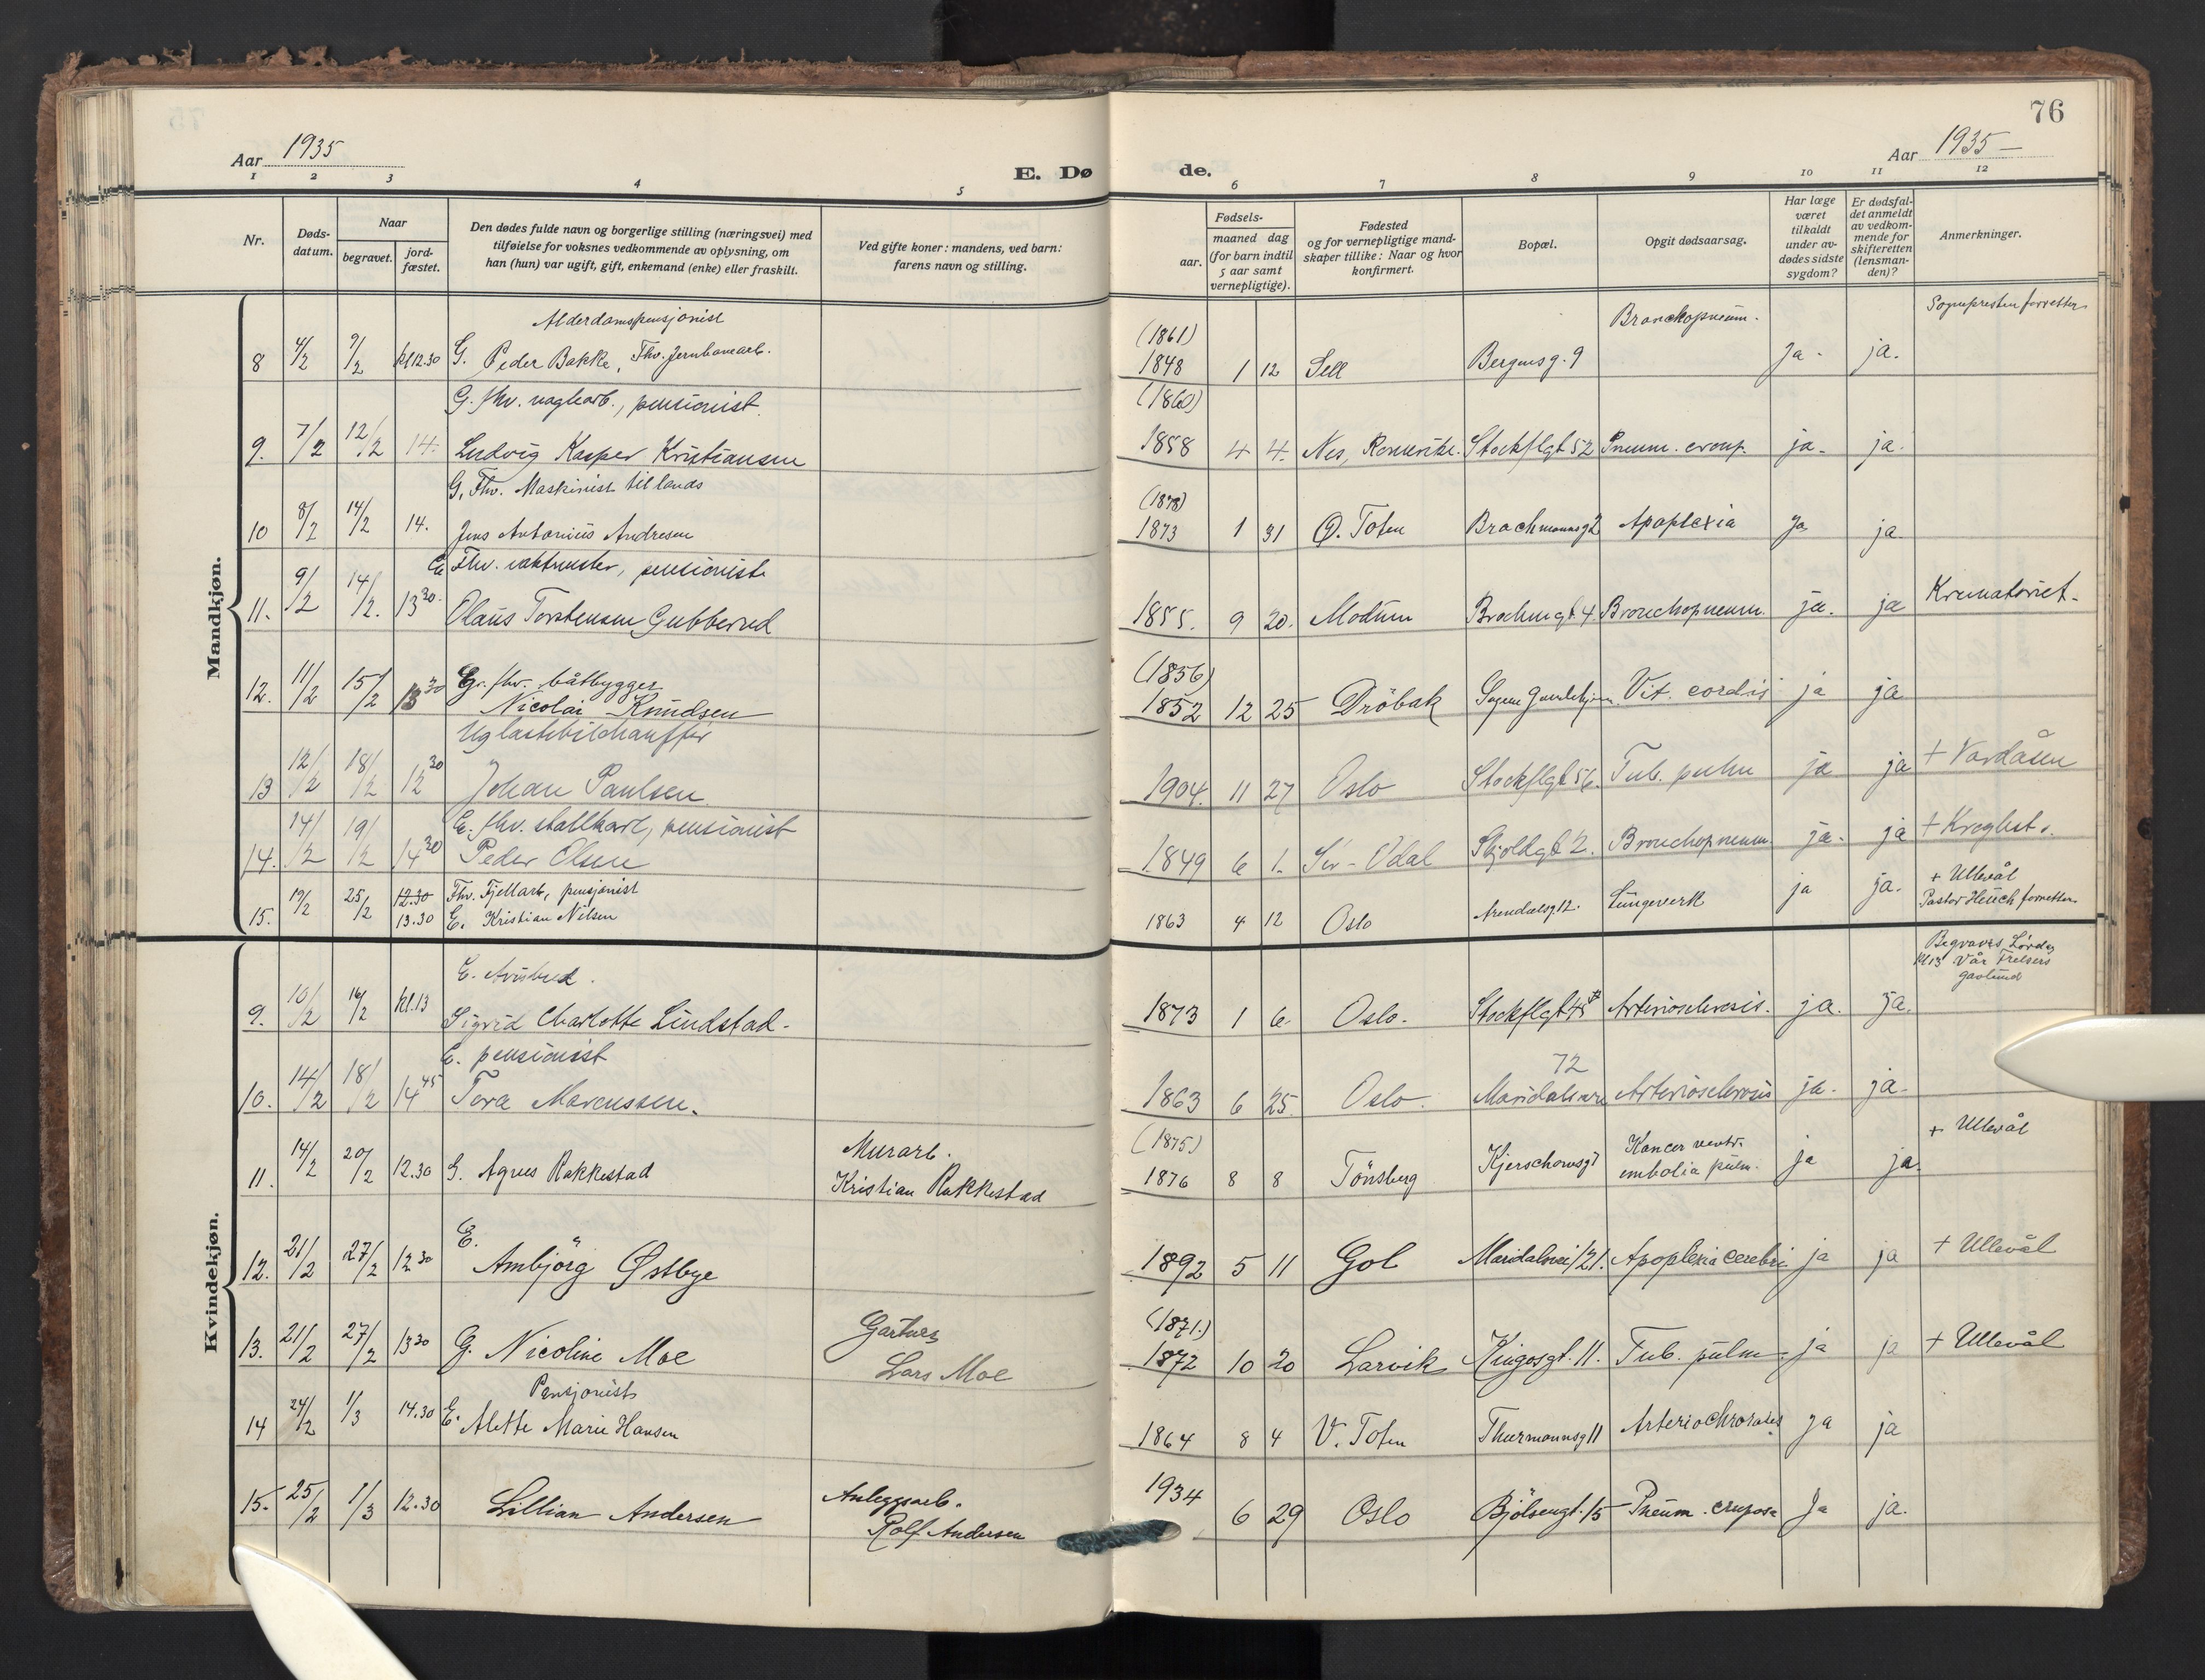 76
Aar 1935
Aar 1935 –
E. Dø de.
1 2 3 4 5 6 7 8 9 10 11 12
Nr.
Døds-datum.
Naar
begravet.
jord-fæstet.
Den dødes fulde navn og borgerlige stilling (næringsvei) med
tilføielse for voksnes vedkommende av oplysning, om
han (hun) var ugift, gift, enkemand (enke) eller fraskilt.
Ved gifte koner: mandens, ved barn:
farens navn og stilling.
Fødsels-
aar.
maaned dag
(for barn indtil
5 aar samt
vernepligtige).
Fødested
og for vernepligtige mand-
skaper tillike: Naar og hvor
konfirmert.
Bopæl.
Opgit dødsaarsag.
Har læge
været
tilkaldt
under av-
dødes sidste
sygdom?
Er dødsfal-
det anmeldt
av vedkom-
mende for
skifteretten
(lensman-
den)?
Anmerkninger.
Mandkjøn.
Alderdomspensjonist (1861) Bronchopneum. Sognepresten forretter
8 4/2 9/2 kl 12.30 G. Peder Bakke, Fhv. Jernbanearb. 1848 1 12 Sell Bergensg. 9 Ja - ja.
G. fhv. pensionist. (1860)
9. 7/2 12/2 14. Ludvig Kasper Kristiansen 1858 4 4. Nes, Romerike. Stockflgt 52 Pneum. croup. ja - ja.
G. Fhv. Maskinist til lands (1878)
10 8/2 14/2 14. Jens Antonius Andresen 1873 1 31 Ø. Toten Brochmannsg 2 Apoplexia Ja ja
E. Fhv. vaktmester, pensionist
11. 9/2 14/2. 13 30. Olaus Torstensen Gubberud 1855. 9 20. Modum Brochmgt. 4. Bronchopneum. ja. ja Krematoriet.
G. fhv. båtbygger (1856)
12. 11/2 15/2 13 30 Nicolai Knudsen 1852 12 25 Drøbak Sagene Gamlehjem Vit. cordis ja ja
Ug lastebilchauffør
13 12/2 18/2 12 30 Johan Paulsen 1904. 11 27 Oslo Stockflgt 56. Tub. pulm ja ja + Vardåsen
E. fhv. stallkarl, pensionist
14. 14/2 19/2 14 30 Peder Olsen 1849 6 1. Sør-Odal Skjoldgt 2. Bronchopneum. ja. ja + Kroghst.
Fhv. Fjellarb, pensjonist + Ullevål
15. 19/2 25/2 12.30 13.30 E. Kristian Nilsen 1863 4 12 Oslo Arendalsg 12. Lungeverk ja ja. Pastor Heuch forretter
Kvindekjøn.
E. Avisbud. Begraves Lørdag kl 13 Vår Frelsers gravlund
9. 10/2 16/2 kl. 13 Sigrid Charlotte Lindstad. 1873 1 6. Oslo. Stockflgt 45 Arteriosclerosis. ja. ja.
E. pensionist 72
10. 14/2 18/2 14 45 Tora Marcussen. 1863 6 25. Oslo. Maridalsvn Arteriosclerosis ja. ja.
Murarb. (1875) Kancer ventr. + Ullevål
11. 14/2 20/2 12.30 G. Agnes Rakkestad Kristian Rakkestad 1876 8 8 Tønsberg Kjerschowsg 7 embolia pulm. ja ja.
E.
12. 21/2 27/2 12 30 Ambjörg Østbye 1892 5 11 Gol Maridalsvei 121. Apoplexia cerebri ja ja + Ullevål
Gartner (1871.)
13. 21/2 27/2 13 30 G. Nicoline Moe Lars Moe 1872 10 20 Larvik Kingosgt. 11. Tub. pulm. ja ja + Ullevål
Pensjonist
14 24/2 1/3 14.30 E. Alette Marie Hansen 1864 8 4 V. Toten Thurmannsg 11 ja ja
Anleggsarb. 1934
15. 25/2 1/3 12.30 Lillian Andersen Rolf Andersen 6 29 Oslo Bjølsengt. 15 Pneum. cruposa Ja ja.